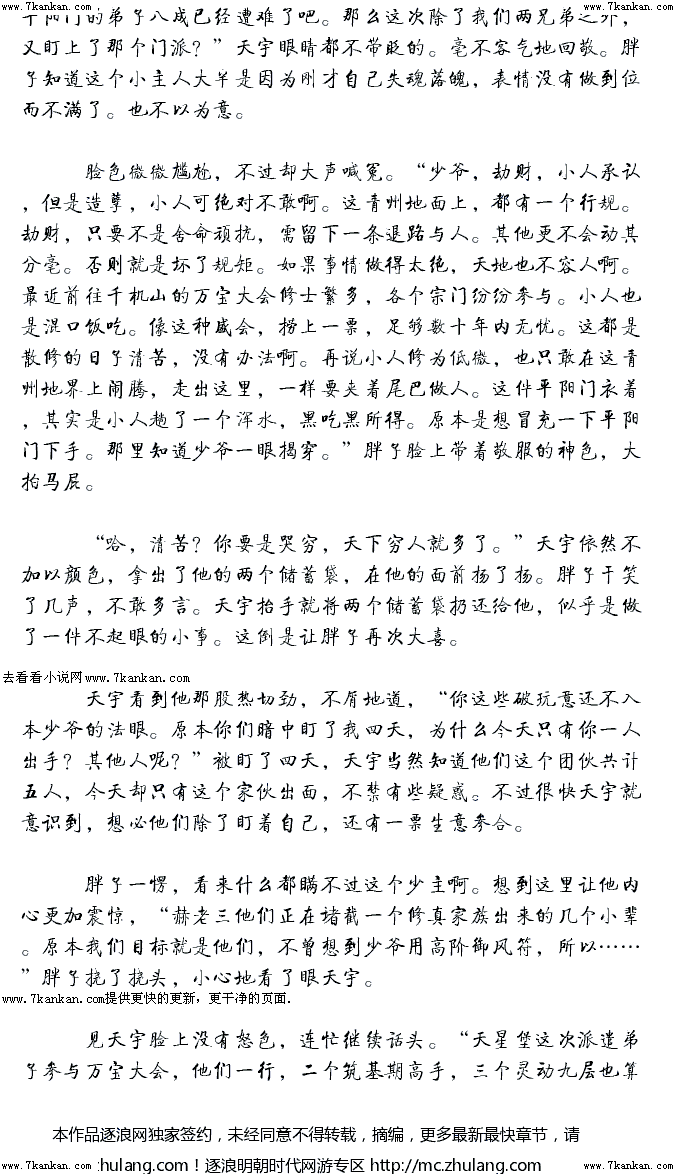 www.7kankan.com www.7kankan.com
平阳门的弟子八成已经遭难了吧。那么这次除了我们两兄弟之外，
又盯上了那个门派？”天宇眼睛都不带眨的。毫不客气地回敬。胖
子知道这个小主人大半是因为刚才自己失魂落魄，表情没有做到位
而不满了。也不以为意。
脸色微微尴尬，不过却大声喊冤。“少爷，劫财，小人承认
，但是造孽，小人可绝对不敢啊。这青州地面上，都有一个行规。
劫财，只要不是舍命顽抗，需留下一条退路与人。其他更不会动其
分毫。否则就是坏了规矩。如果事情做得太绝，天地也不容人啊。
最近前往千机山的万宝大会修士繁多，各个宗门纷纷参与。小人也
是混口饭吃。像这种盛会，捞上一票，足够数十年内无忧。这都是
散修的日子清苦，没有办法啊。再说小人修为低微，也只敢在这青
州地界上闹腾，走出这里，一样要夹着尾巴做人。这件平阳门衣着
，其实是小人趟了一个浑水，黑吃黑所得。原本是想冒充一下平阳
门下手。那里知道少爷一眼揭穿。”胖子脸上带着敬服的神色，大
拍马屁。
“哈，清苦？你要是哭穷，天下穷人就多了。”天宇依然不
加以颜色，拿出了他的两个储蓄袋，在他的面前扬了扬。胖子干笑
了几声，不敢多言。天宇抬手就将两个储蓄袋扔还给他，似乎是做
了一件不起眼的小事。这倒是让胖子再次大喜。
去看看小说网www.7kankan.com
天宇看到他那股热切劲，不屑地道，“你这些破玩意还不入
本少爷的法眼。原本你们暗中盯了我四天，为什么今天只有你一人
出手？其他人呢？”被盯了四天，天宇当然知道他们这个团伙共计
五人，今天却只有这个家伙出面，不禁有些疑惑。不过很快天宇就
意识到，想必他们除了盯着自己，还有一票生意参合。
胖子一愣，看来什么都瞒不过这个少主啊。想到这里让他内
心更加震惊，“赫老三他们正在堵截一个修真家族出来的几个小辈
。原本我们目标就是他们，不曾想到少爷用高阶御风符，所以……
”胖子挠了挠头，小心地看了眼天宇。
www.7kankan.com提供更快的更新，更干净的页面.
见天宇脸上没有怒色，连忙继续话头。“天星堡这次派遣弟
子参与万宝大会，他们一行，二个筑基期高手，三个灵动九层也算
本作品逐浪网独家签约，未经同意不得转载，摘编，更多最新最快章节，请
www.7kankan.com zhulang.com！逐浪明朝时代网游专区 http://mc.zhulang.com www.7kankan.com